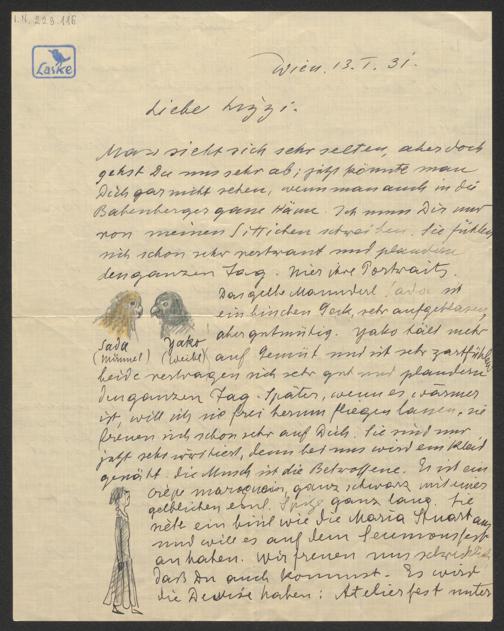 I.N. 223.116
Laske
Wien. 13. I. 31.
Liebe Lizzi.
Man sieht sich sehr selten, aber doch
gehst Du uns sehr ab; jetzt könnte man
Dich gar nicht sehen, wenn man auch in die
Babenbergergasse käme. Ich muss Dir nur
von meinen Sittichen schreiben. Sie fühlen
sich schon sehr vertraut und plaudern
den ganzen Tag. Hier ihre Portraits.
Das gelbe Manderl Sada ist
ein bischen Geck, sehr aufgeblasen,
aber gutmütig. Yako hält mehr
Sada
(Mimmel)
Yako
(Weibl)
auf Gemüt und ist sehr zartfühlend
beide vertragen sich sehr gut und plaudern
den ganzen Tag. Später, wenn es wärmer
ist, will ich sie frei herum fliegen lassen. Sie
freuen sich schon sehr auf Dich. Sie sind nur
jetzt sehr verstört, denn bei uns wird ein Kleid
genäht. Die Musch ist die Betroffene. Es ist ein
crêpe marocain, ganz schwarz mit einer
gelblichen Spitze ganz lang. Sie
sieht ein bissl wie die Maria Stuart aus
und will es auf dem
anhaben. Wir freuen uns schrecklich
daß Du auch kommst. Es wird
die Devise haben: Atelierfest unter